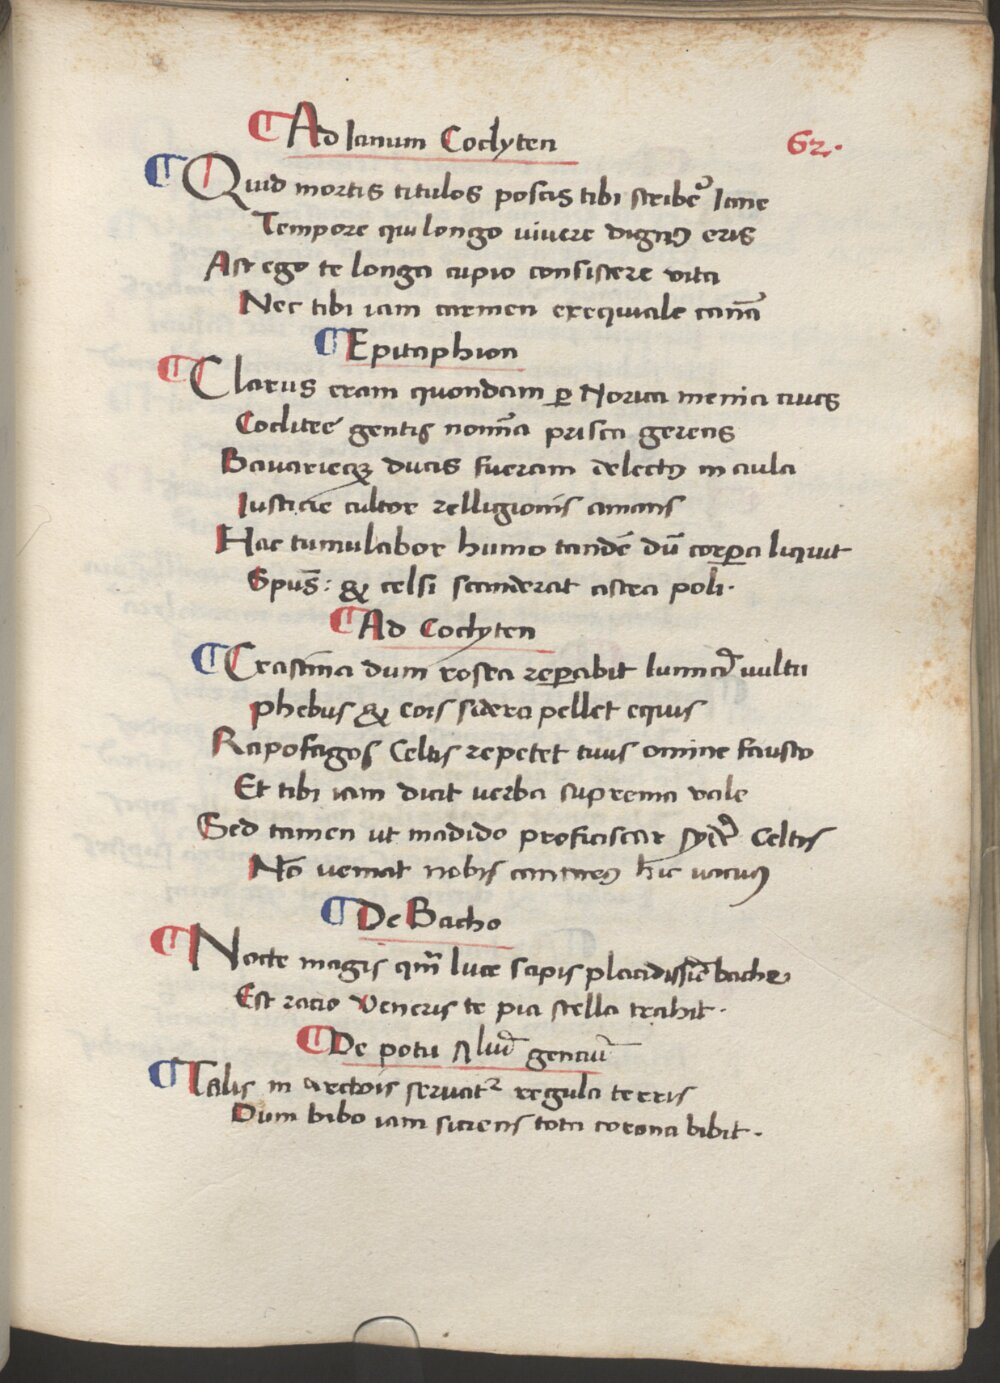 Ad Ianum Coclyten
62.
Quid mortis titulos poscis tibi scribe᷑ Iane
Tempore qui longo vivere dignꝰ eris
Ast ego te longa cupio consistere vita
Nec tibi iam carmen exequiale canā
Epitaphion
Clarus eram quondam ꝑ Norica menia cives
Coclitee gentis nomīa prisca gerens
Bavarieqꝫ ducis fueram delectꝰ in aula
Iusticie cultor relligionis amans
Hac tumulabor humo tandē dū corꝑa liquit
Spūs: & celsi scanderat astra poli.
Ad Coclyten
Crastīna dum rosea reꝑabit lumīa vultu
phebus & eois sidera pellet equis
Rapofagos Celtis repetet tuus omine fausto
Et tibi iam dicit verba suprema vale
Sed tamen ut madido proficiscar Celtis
Nō veniat nobis cantarꝰ hic vacuꝰ
De Bacho
Nocte magis qm̄ luce sapis placidissīe bache
Est racio Veneris te pia stella trahit.
De potu genciū
Talis in arctois servatᷣ regula terris
Dum bibo iam siciens tota corona bibit.